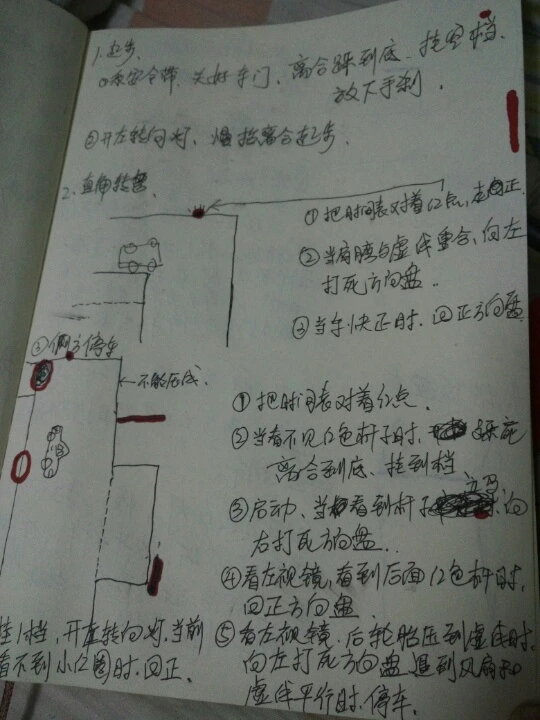 1.起步.
①系安全带、关好车门、离合踩到底、挂空档、
放下手刹.
②开左转向灯、慢抬离合起步.
2.直角转弯.
①把时间表对着红点,走正.
②当肩膀与虚线重合,向左
打死方向盘..
③当车快正时.回正方向盘
③侧方停车
←不能压线.
①把时间表对着红点.
②当看不见红色杆子时、踩死
离合到底、挂到档
③启动、当看到杆子立马向
右打死方向盘..
④看左视镜,看到后面红色杆时,
回正方向盘
挂1档,开左转向灯.当前
看不到小红圈时.回正.
⑤看左视镜.后轮胎压到虚线时,
向左打死方向盘.退到风扇和
虚线平行时.停车.